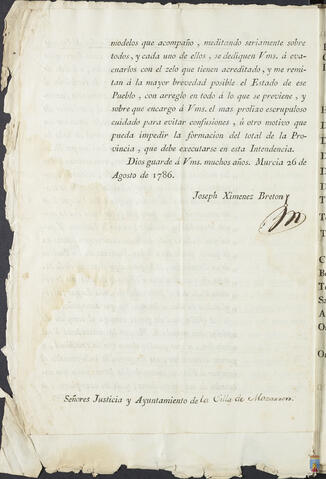 modelos que acompaño, meditando seriamente sobre
todos, y cada uno de ellos, se dediquen Vms. á eva-
cuarlos con el zelo que tienen acreditado, y me remi-
tan á la mayor brevedad posible el Estado de ese
Pueblo, con arreglo en todo á lo que se previene, y
sobre que encargo á Vms. el mas prolixo escrupuloso
cuidado para evitar confusiones, ú otro motivo que
pueda impedir la formacion del total de la Pro-
vincia, que debe executarse en esta Intendencia.
Dios guarde á Vms. muchos años. Murcia 26 de
Agosto de 1786.
Joseph Ximenez Breton
Señores Justicia y Ayuntamiento de la Villa de Mazarron.